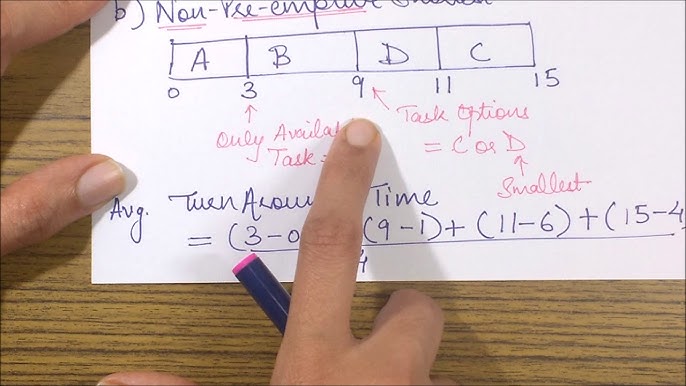 b) Non-Pre-emptive
A B D C
0 3 9 11 15
Only Availa
Task =
Task Options
= C or D
Smallest
Avg. Turn Arou Time
= (3-0 (9-1) + (11-6) + (15-4)
4